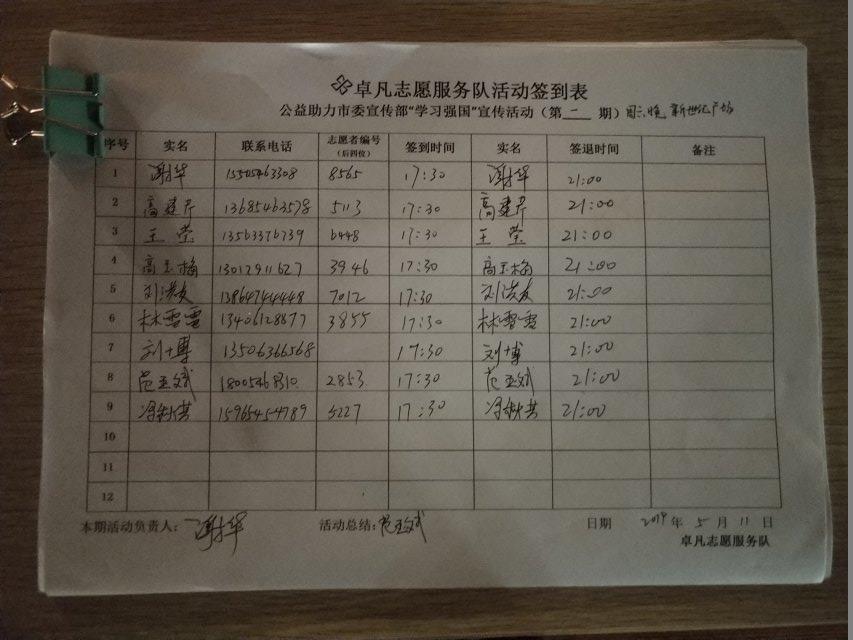 卓凡志愿服务队活动签到表
公益助力市委宣传部“学习强国”宣传活动（第二期）周六晚 新世纪广场
序号 实名 联系电话 志愿者编号（后四位） 签到时间 实名 签退时间 备注
1 谢华 15505463308 8565 17:30 谢华 21:00
2 高建芹 13685463578 5113 17:30 高建芹 21:00
3 王莹 13563376739 6448 17:30 王莹 21:00
4 高玉梅 13012911627 3946 17:30 高玉梅 21:00
5 刘洪友 13864744448 7012 17:30 刘洪友 21:00
6 林雪雪 13406128877 3855 17:30 林雪雪 21:00
7 刘博 13506366568 17:30 刘博 21:00
8 范亚斌 18005468310 2853 17:30 范亚斌 21:00
9 冯秋芸 15965454789 5227 17:30 冯秋芸 21:00
10
11
12
本期活动负责人：谢华 活动总结：范亚斌 日期 2019年5月11日
卓凡志愿服务队